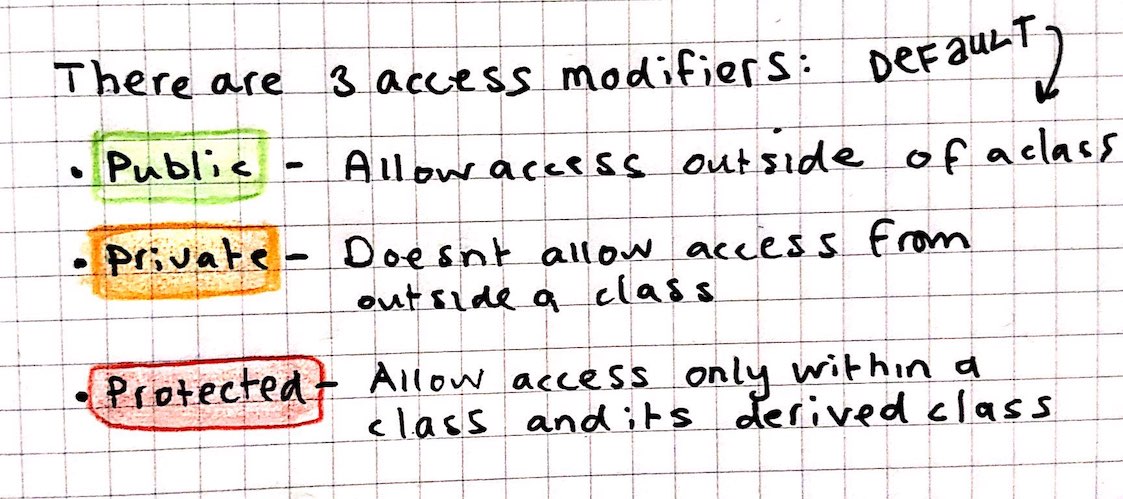 There are 3 access modifiers: DEFAULT
• Public - Allow access outside of a class
• Private - Doesnt allow access from
outside a class
• Protected - Allow access only within a
class and its derived class